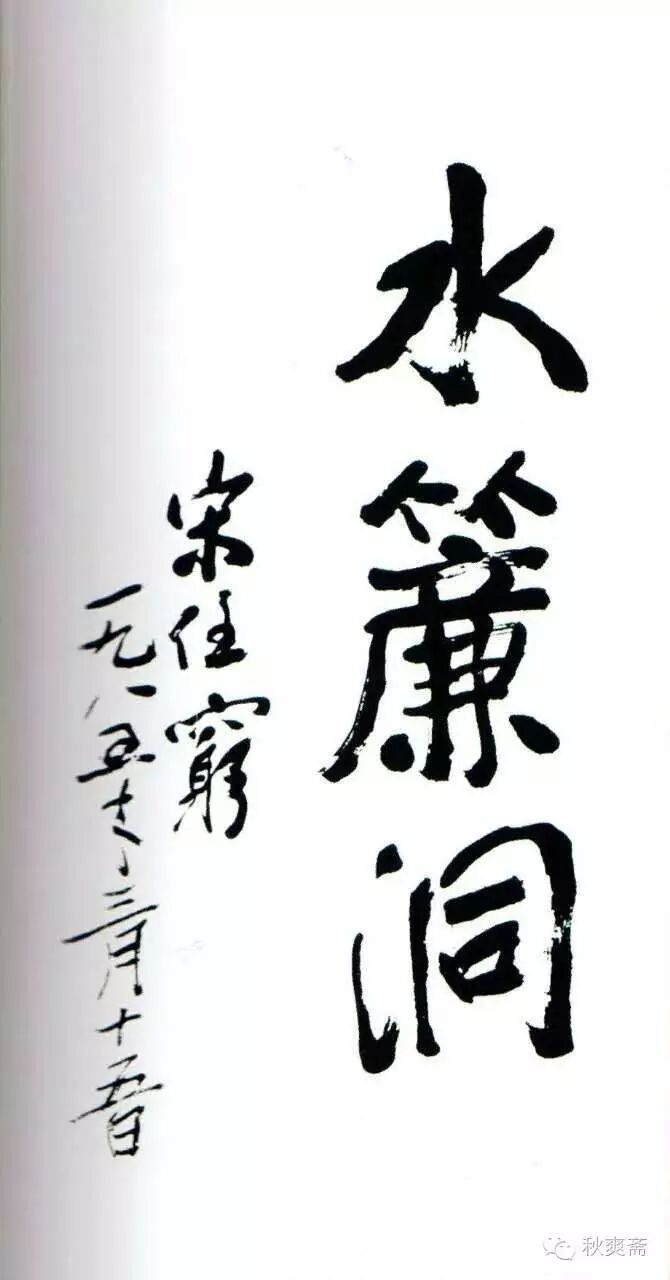 水簾洞
宋任窮
一九八五年三月十五日
秋爽斋